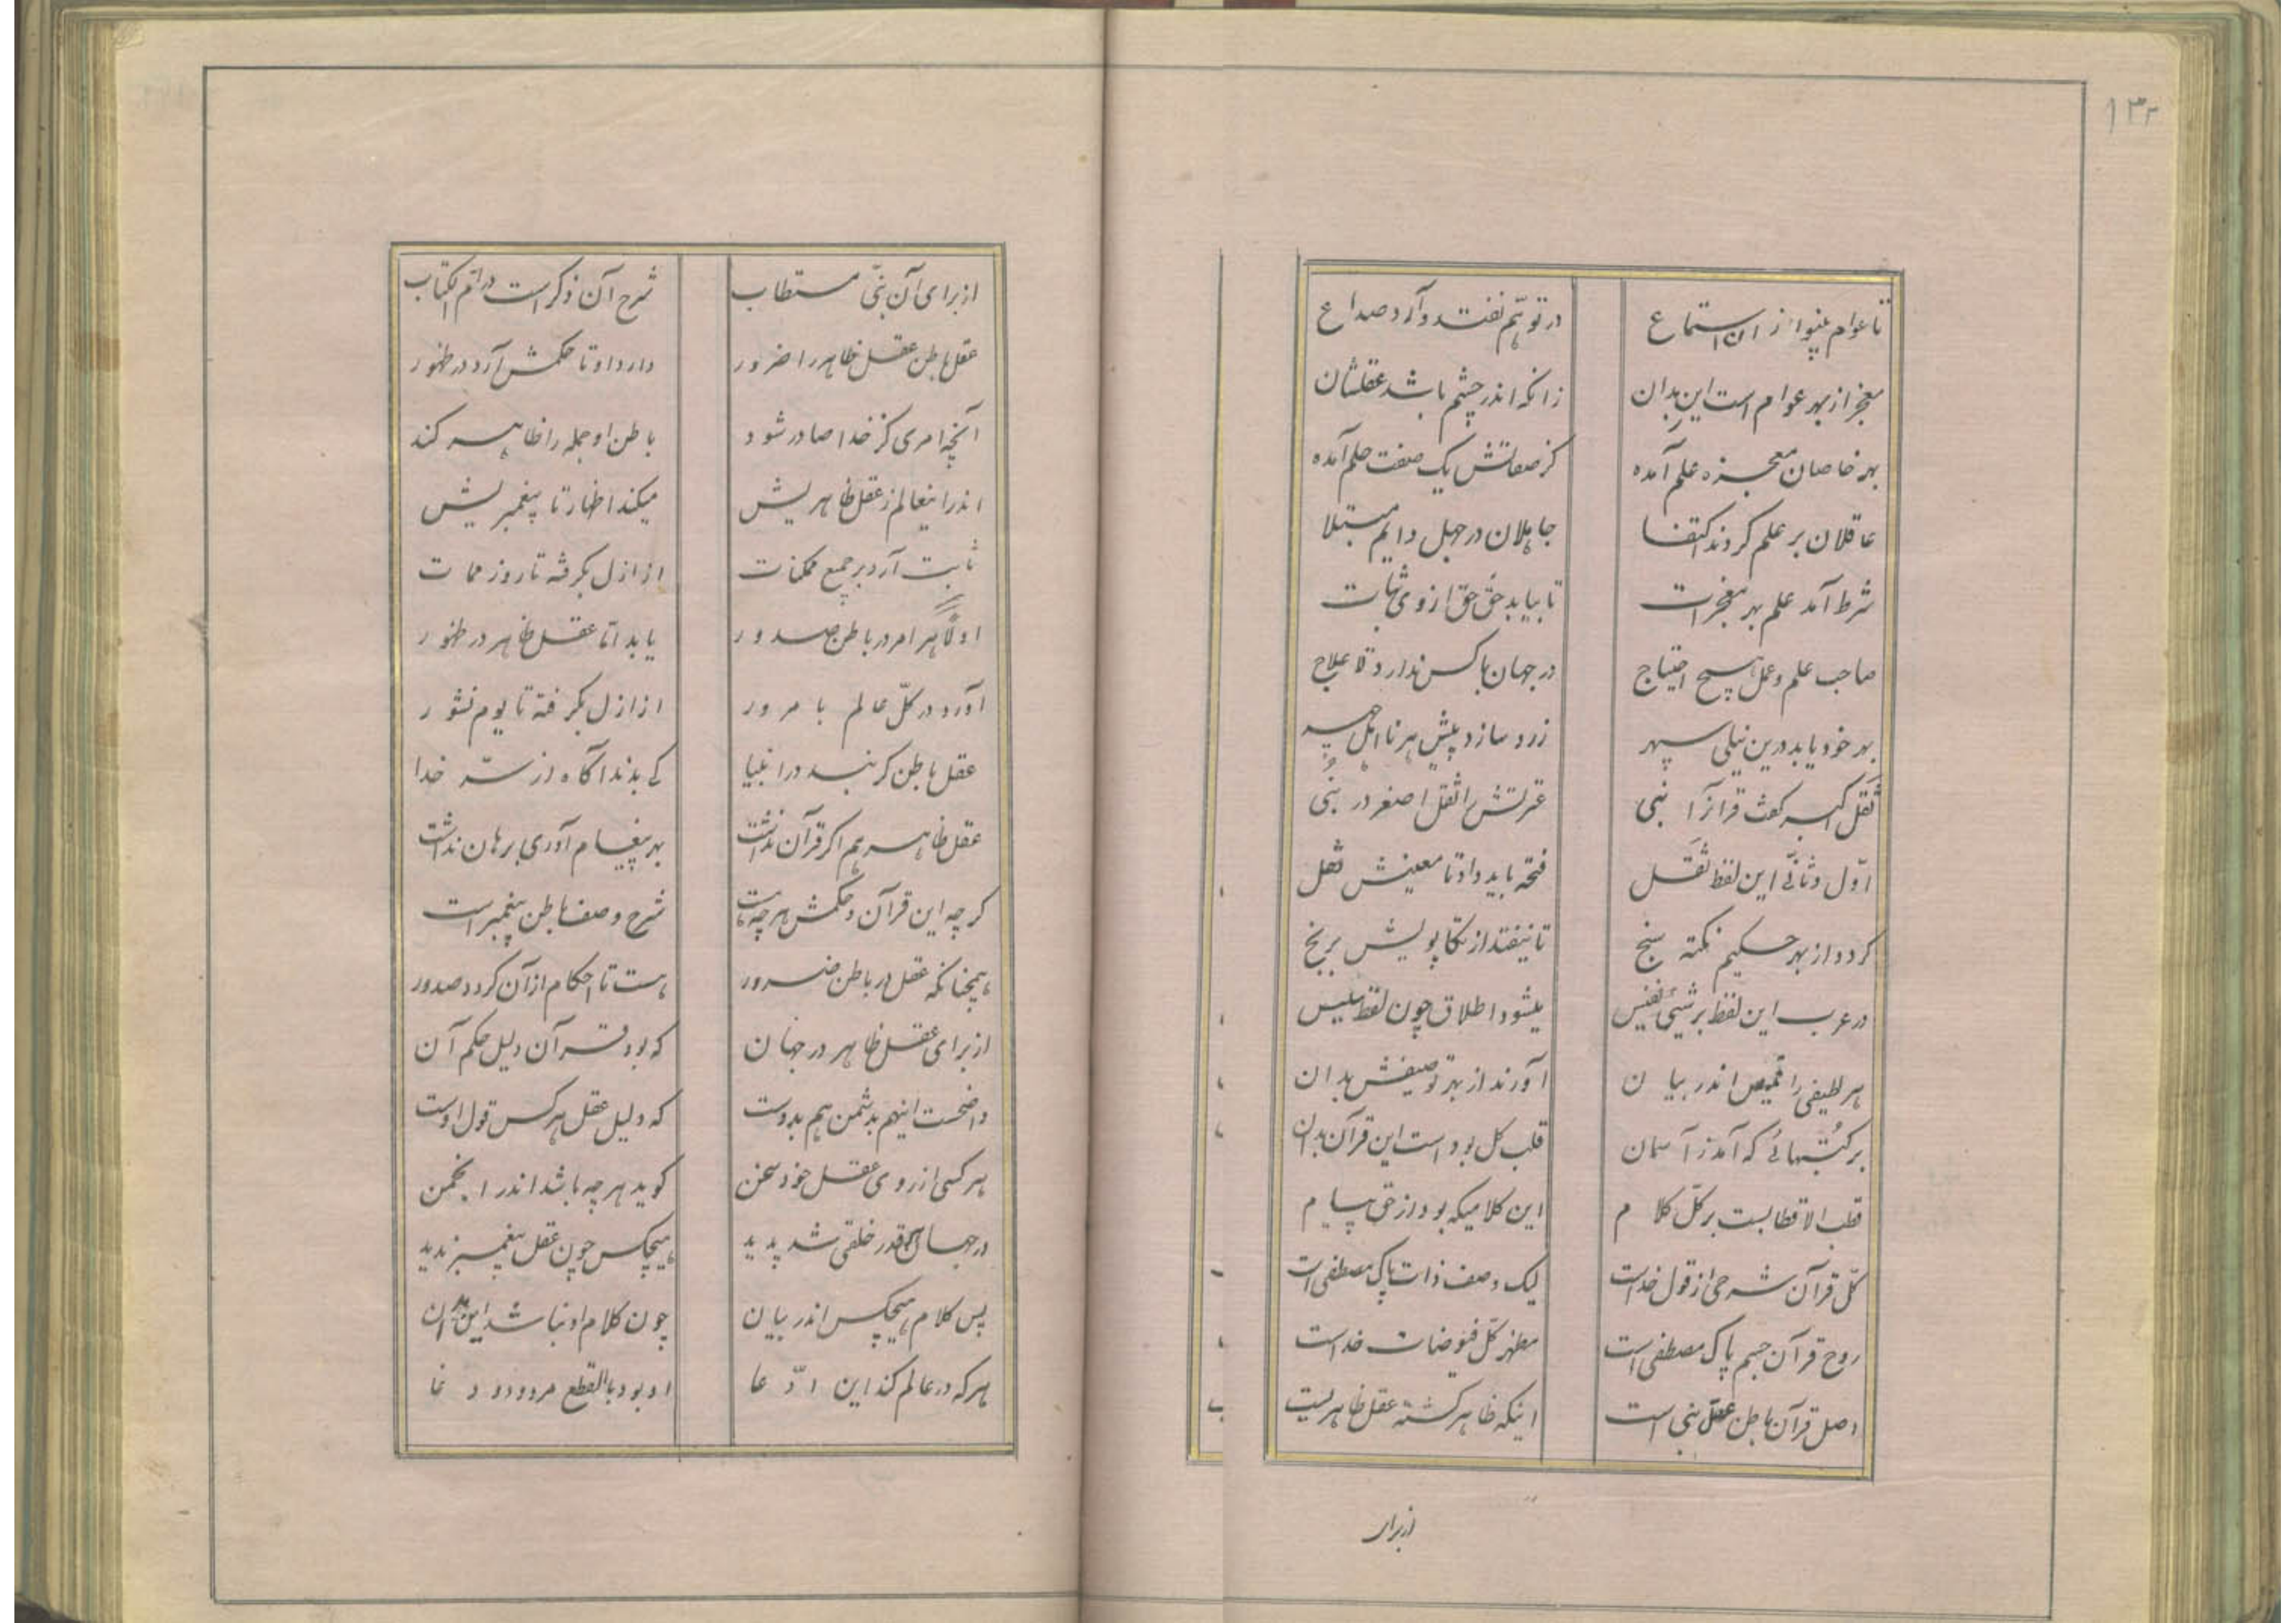 ۱۳۲
تا عوام بینوا از آن استماع در توهّم نفتد و آرد صداع
معجز از بهر عوام است این بدان زانکه اندر چشم باشد عقلشان
بهر خاصان معجزه علم آمده کز صفاتش یک صفت حلم آمده
عاقلان بر علم کردند اکتفا جاهلان در جهل دایم مبتلا
شرط آمد علم بهر معجزات تا بیابد حقّ حق از وی ثبات
صاحب علم و عمل هیچ احتیاج در جهان با کس ندارد لاعلاج
بهر خود یابد درین نیلی سپهر زرد سازد پیش هر نااهل چهر
ثقل اکبر گفت قرآن را نبی عترتش را ثقل اصغر در نُبی
اوّل و ثانی این لفظ ثقل فتحه باید داد تا معنیش ثقل
گردد از بهر حکیم نکته سنج تا نیفتد از تکاپویش برنج
در عرب این لفظ بر شیئی نفیس میشود اطلاق چون لفظ سلیس
هر لطیفی را قمیص اندر بیان آورند از بهر توصیفش بدان
بر کتبهائی که آمد ز آسمان قلب کل بوداست این قرآن بدان
قطب الاقطابست بر کلّ کلام این کلامیکه بود از حق پیام
کلّ قرآن شرحی از قول خداست لیک وصف ذات پاک مصطفی است
روح قرآن جسم پاک مصطفی است مظهر کلّ فیوضات خداست
اصل قرآن باطن عقل نبی است اینکه ظاهر گشته عقل ظاهریست
از برای
از برای آن نبیّ مستطاب شرح آن ذکر است در امّ الکتاب
عقل باطن عقل ظاهر را ضرور دارد او تا حکمش آرد در ظهور
آنچه امری کز خدا صادر شود باطن او جمله را ظاهر کند
اندر اینعالم ز عقل ظاهریش میکند اظهار تا پیغمبریش
ثابت آرد بر جمیع ممکنات از ازل بگرفته تا روز ممات
اولاً هر امر در باطن صدور یابد امّا عقل ظاهر در ظهور
آورد در کلّ عالم با مرور از ازل بگرفته تا یوم نشور
عقل باطن گر نبد در انبیا کی بدند آگاه از سرّ خدا
عقل ظاهر هم اگر قرآن نداشت بهر پیغام آوری برهان نداشت
گرچه این قرآن و حکمش هر چه هست شرح وصف باطن پیغمبر است
همچنانکه عقل در باطن ضرور هست تا احکام از آن گردد صدور
از برای عقل ظاهر در جهان که بود قرآن دلیل حکم آن
واضحست اینهم بدشمن هم بدوست که دلیل عقل هر کس قول اوست
هر کسی از روی عقل خود سخن گوید هر چه باشد اندر انجمن
در جهان آنقدر خلقی شد پدید هیچکس چون عقل پیغمبر ندید
پس کلام هیچکس اندر بیان چون کلام او نباشد این بدان
هر که در عالم کند این ادّعا او بود بالقطع مردود دغا